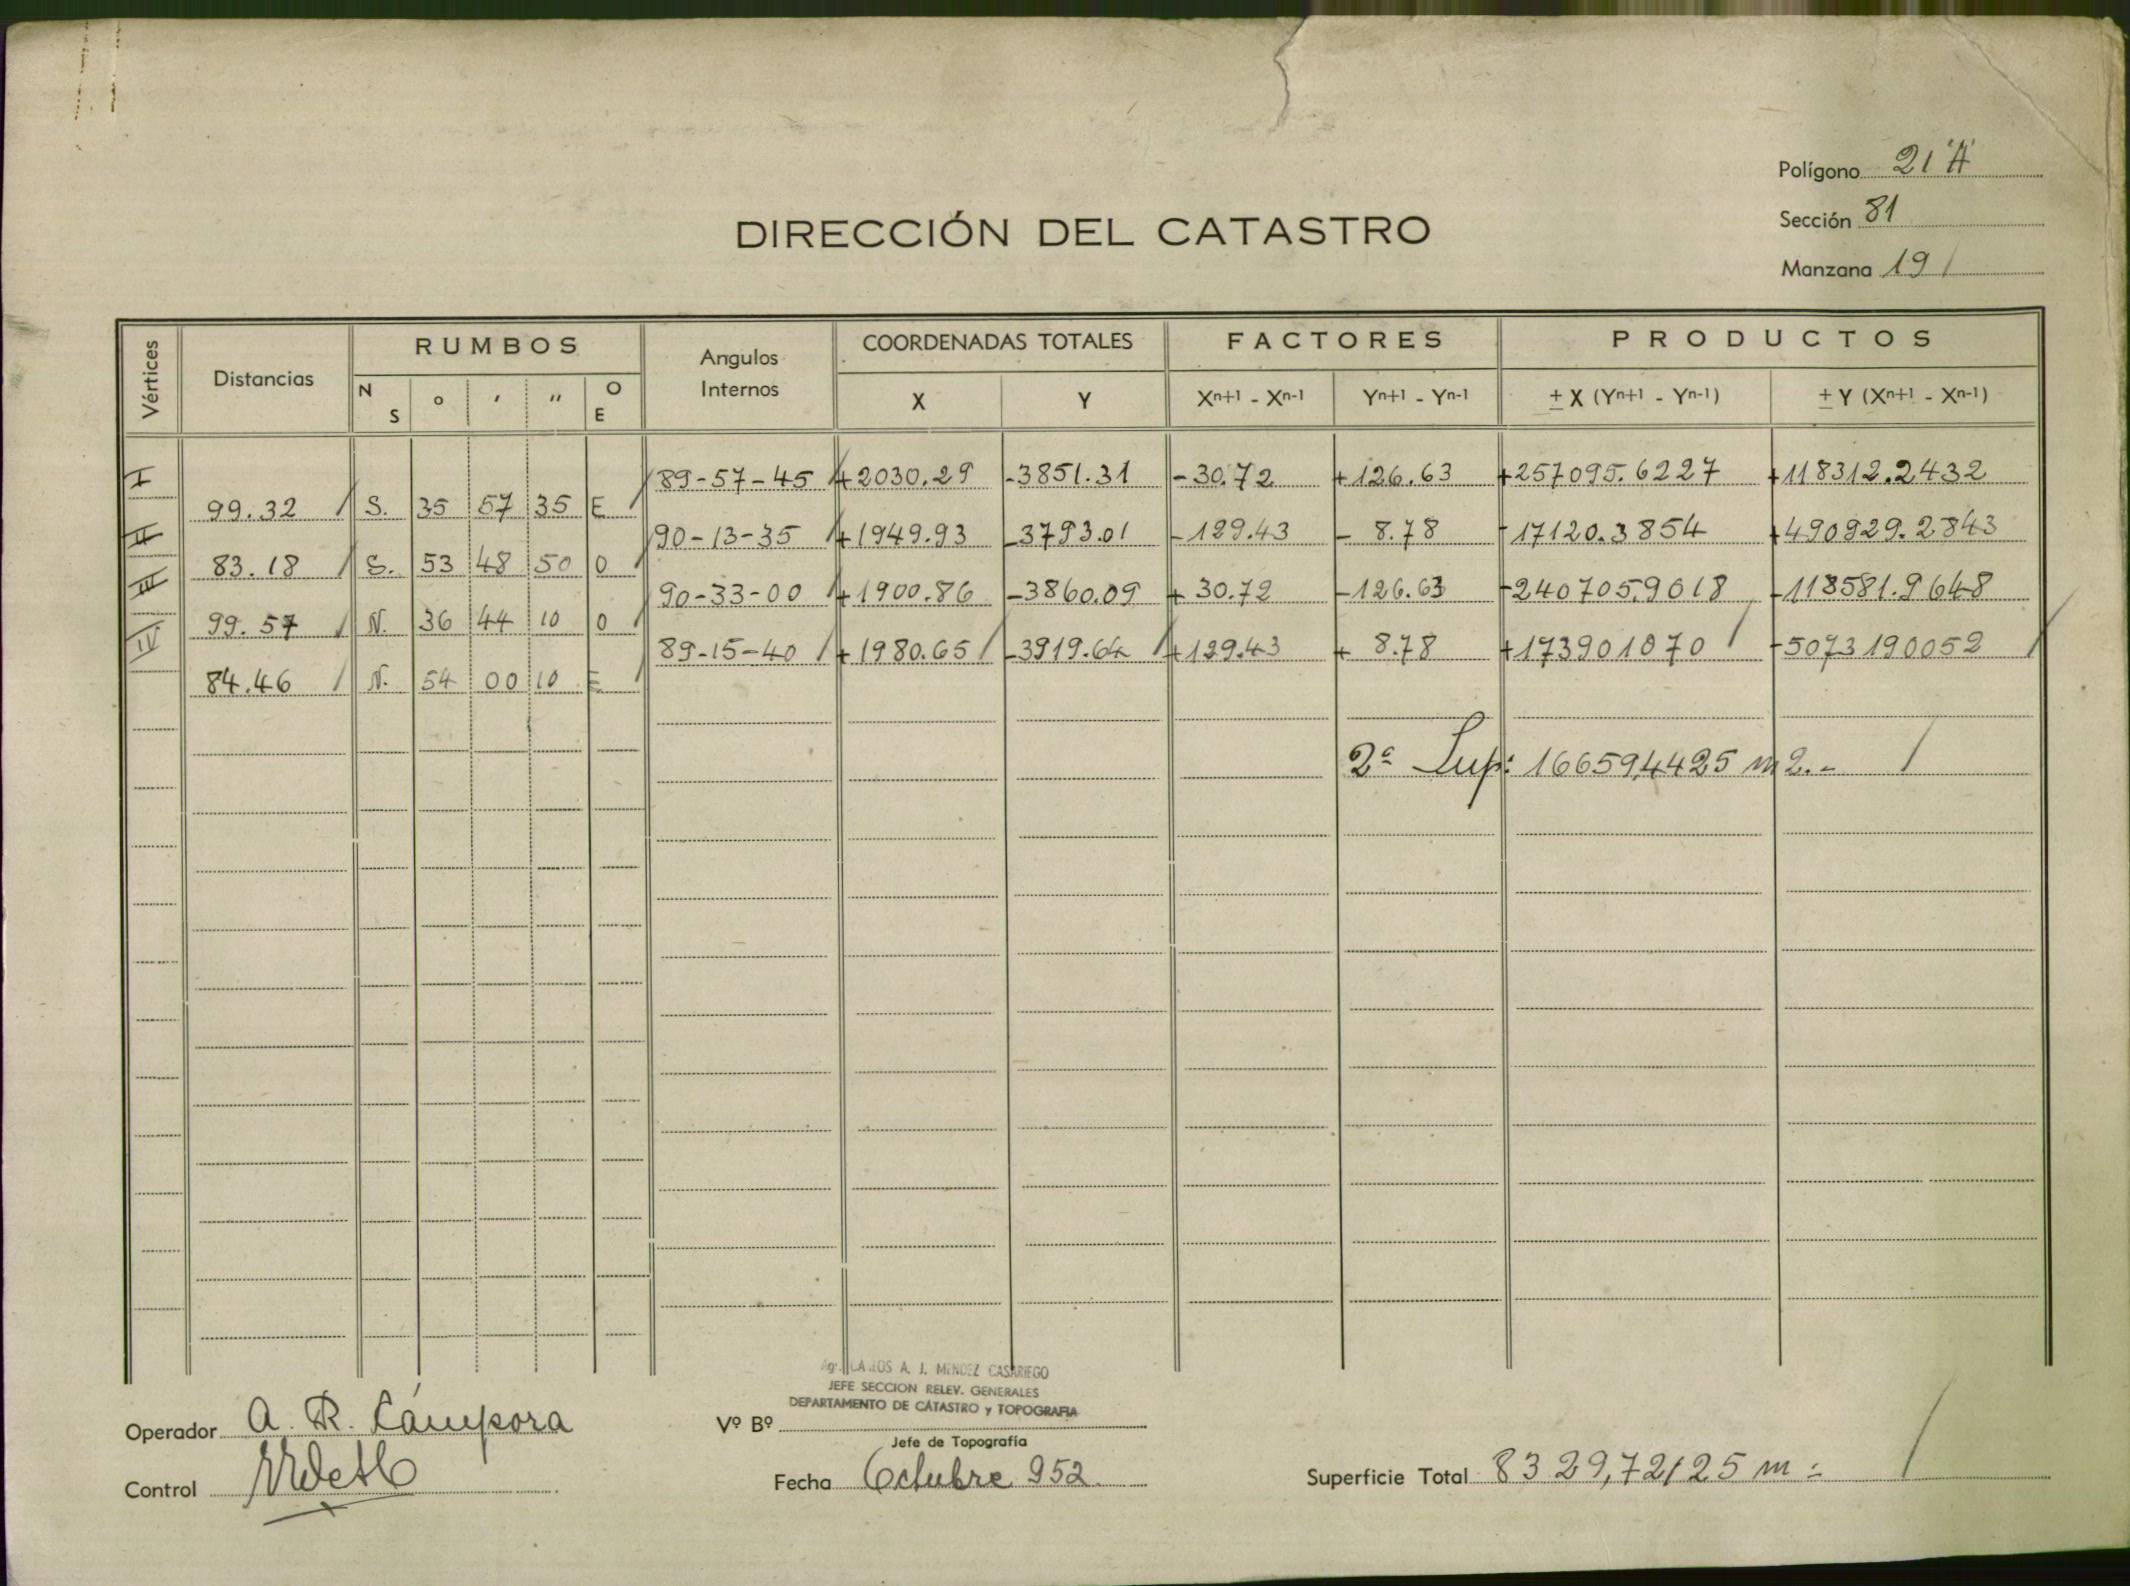 Polígono 21 "A"
Sección 81
Manzana 19
DIRECCIÓN DEL CATASTRO
Vértices Distancias RUMBOS Angulos Internos COORDENADAS TOTALES FACTORES PRODUCTOS
N S ° ′ ″ O E X Y Xn+1 - Xn-1 Yn+1 - Yn-1 ± X (Yn+1 - Yn-1) ± Y (Xn+1 - Xn-1)
I 89-57-45 +2030.29 -3851.31 -30.72 +126.63 +257095.6227 +118312.2432
99.32 S. 35 57 35 E
II 90-13-35 +1949.93 -3793.01 -129.43 - 8.78 -17120.3854 +490929.2843
83.18 S. 53 48 50 O
III 90-33-00 +1900.86 -3860.09 + 30.72 -126.63 -240705.9018 -118581.9648
99.57 N. 36 44 10 O
IV 89-15-40 +1980.65 -3919.64 +129.43 + 8.78 +173901070 -5073190052
84.46 N. 54 00 10 E
2ª Sup: 16659,4425 m2.-
Operador A. R. Cámpora
Control
Agr. CARLOS A. J. MENDEZ CASARIEGO
JEFE SECCION RELEV. GENERALES
DEPARTAMENTO DE CATASTRO y TOPOGRAFIA
Vº Bº
Jefe de Topografía
Fecha Octubre 952
Superficie Total 8329,72125 m²